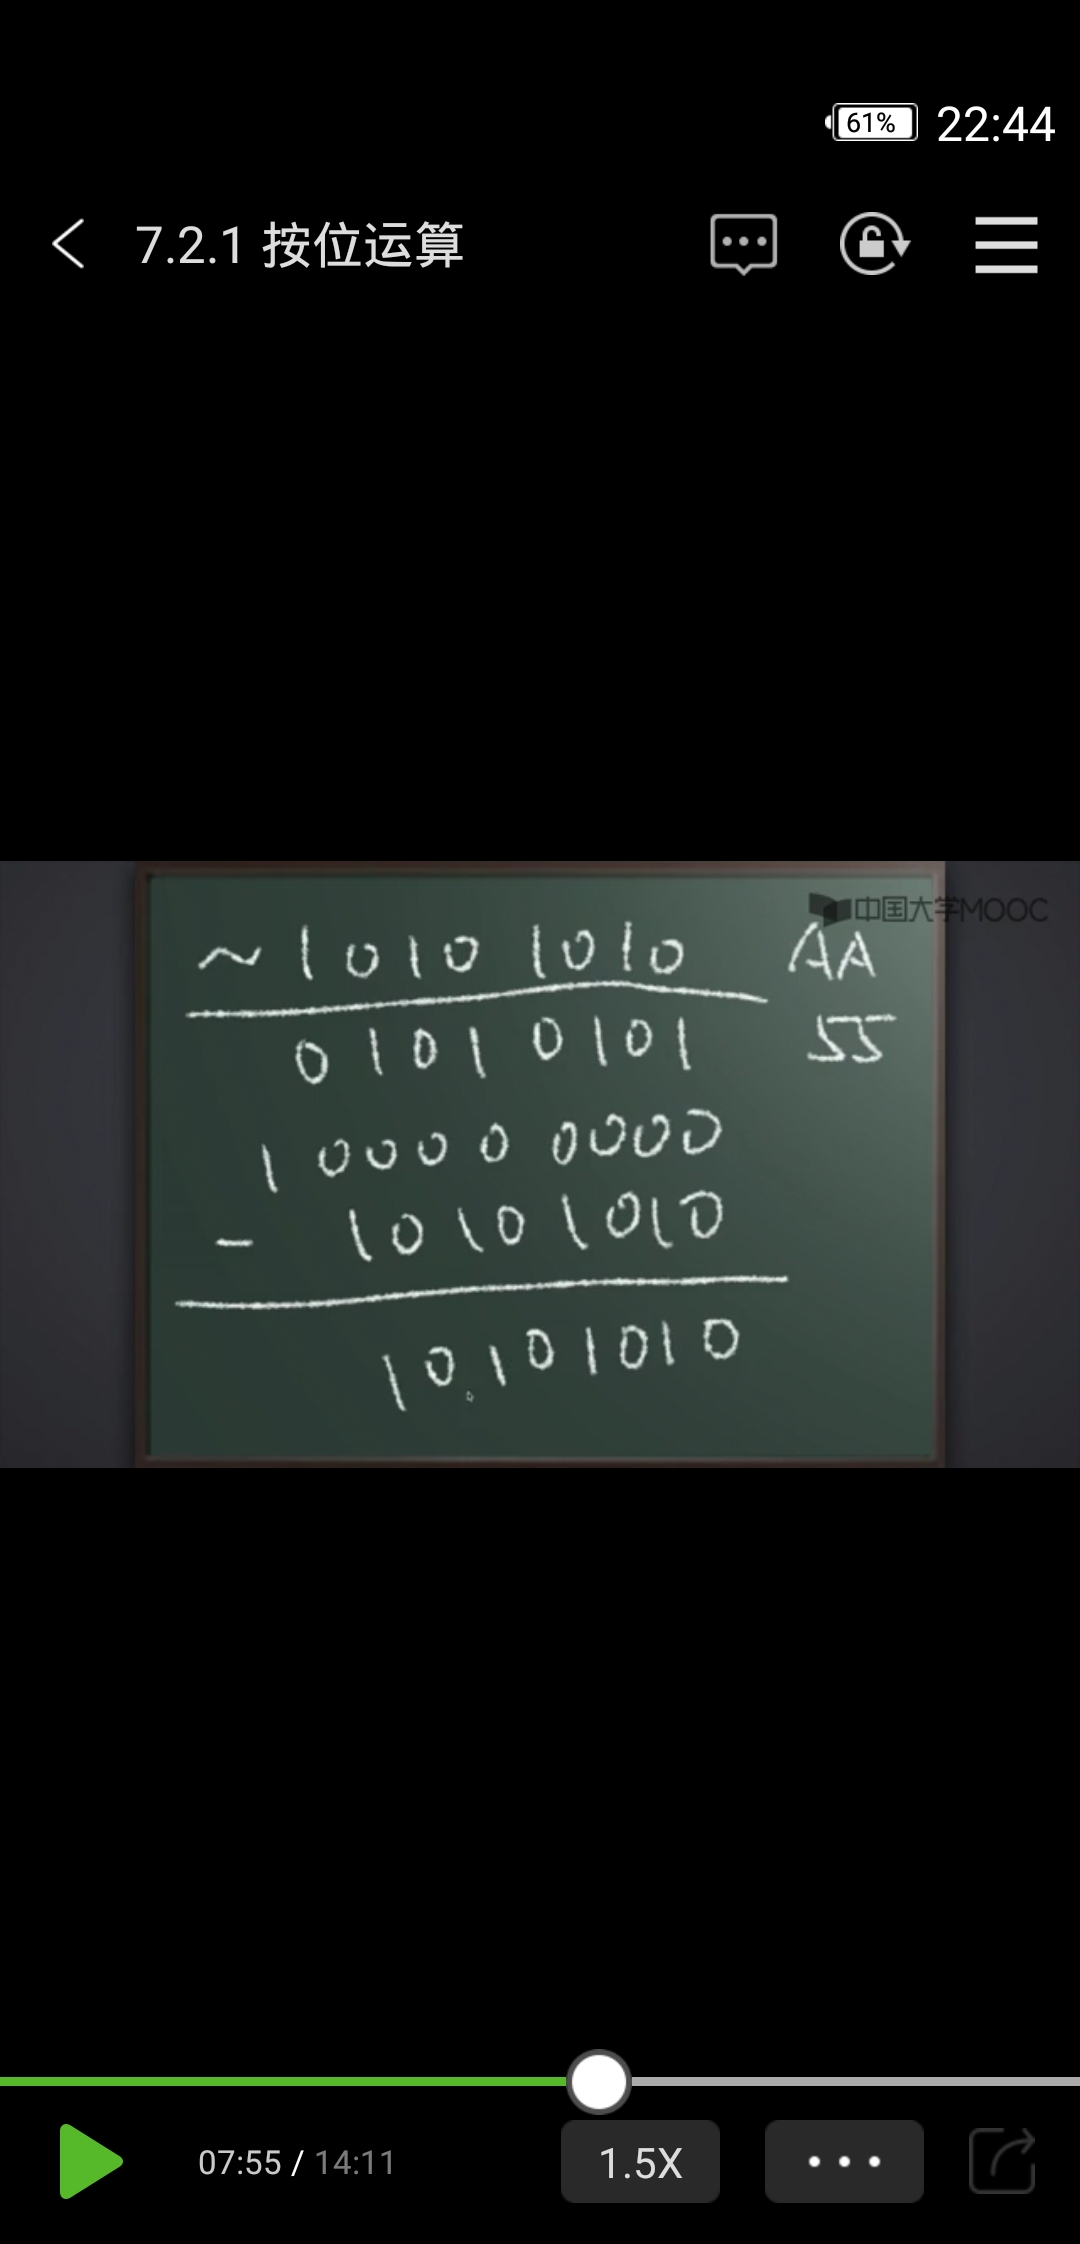 61% 22:44
7.2.1 按位运算
中国大学MOOC
~ 1010 1010 AA
0101 0101 55
1 0000 0000
- 1010 1010
10101010
07:55 / 14:11 1.5X